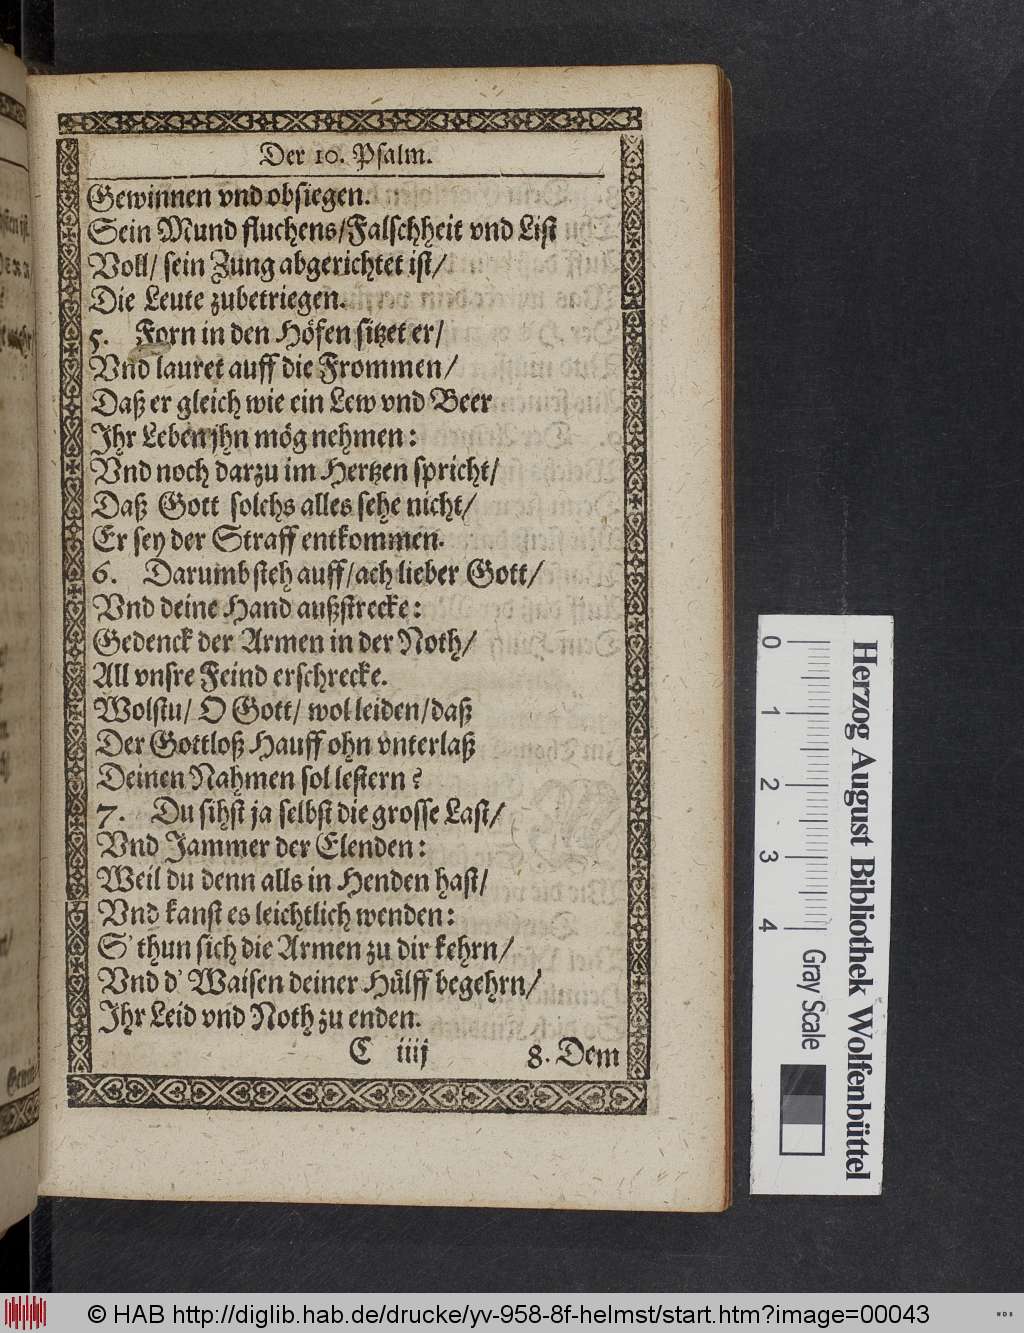 Der 10. Psalm.
Gewinnen vnd obsiegen.
Sein Mund fluchens/Falschheit vnd List
Voll/ sein Zung abgerichtet ist/
Die Leute zubetriegen.
5. Forn in den Höfen sitzet er/
Vnd lauret auff die Frommen/
Daß er gleich wie ein Lew vnd Beer
Ihr Leben jhn mög nehmen:
Vnd noch darzu im Hertzen spricht/
Daß Gott solchs alles sehe nicht/
Er sey der Straff entkommen.
6. Darumb steh auff/ach lieber Gott/
Vnd deine Hand außstrecke:
Gedenck der Armen in der Noth/
All vnsre Feind erschrecke.
Wolstu/ O Gott/ wol leiden/daß
Der Gottloß Hauff ohn vnterlaß
Deinen Nahmen sol lestern?
7. Du sihst ja selbst die grosse Last/
Vnd Jammer der Elenden:
Weil du denn alls in Henden hast/
Vnd kanst es leichtlich wenden:
S' thun sich die Armen zu dir kehrn/
Vnd d' Waisen deiner Hülff begehrn/
Ihr Leid vnd Noth zu enden.
C iiij 8. Dem
0 1 2 3 4
Gray Scale
Herzog August Bibliothek Wolfenbüttel
© HAB http://diglib.hab.de/drucke/yv-958-8f-helmst/start.htm?image=00043